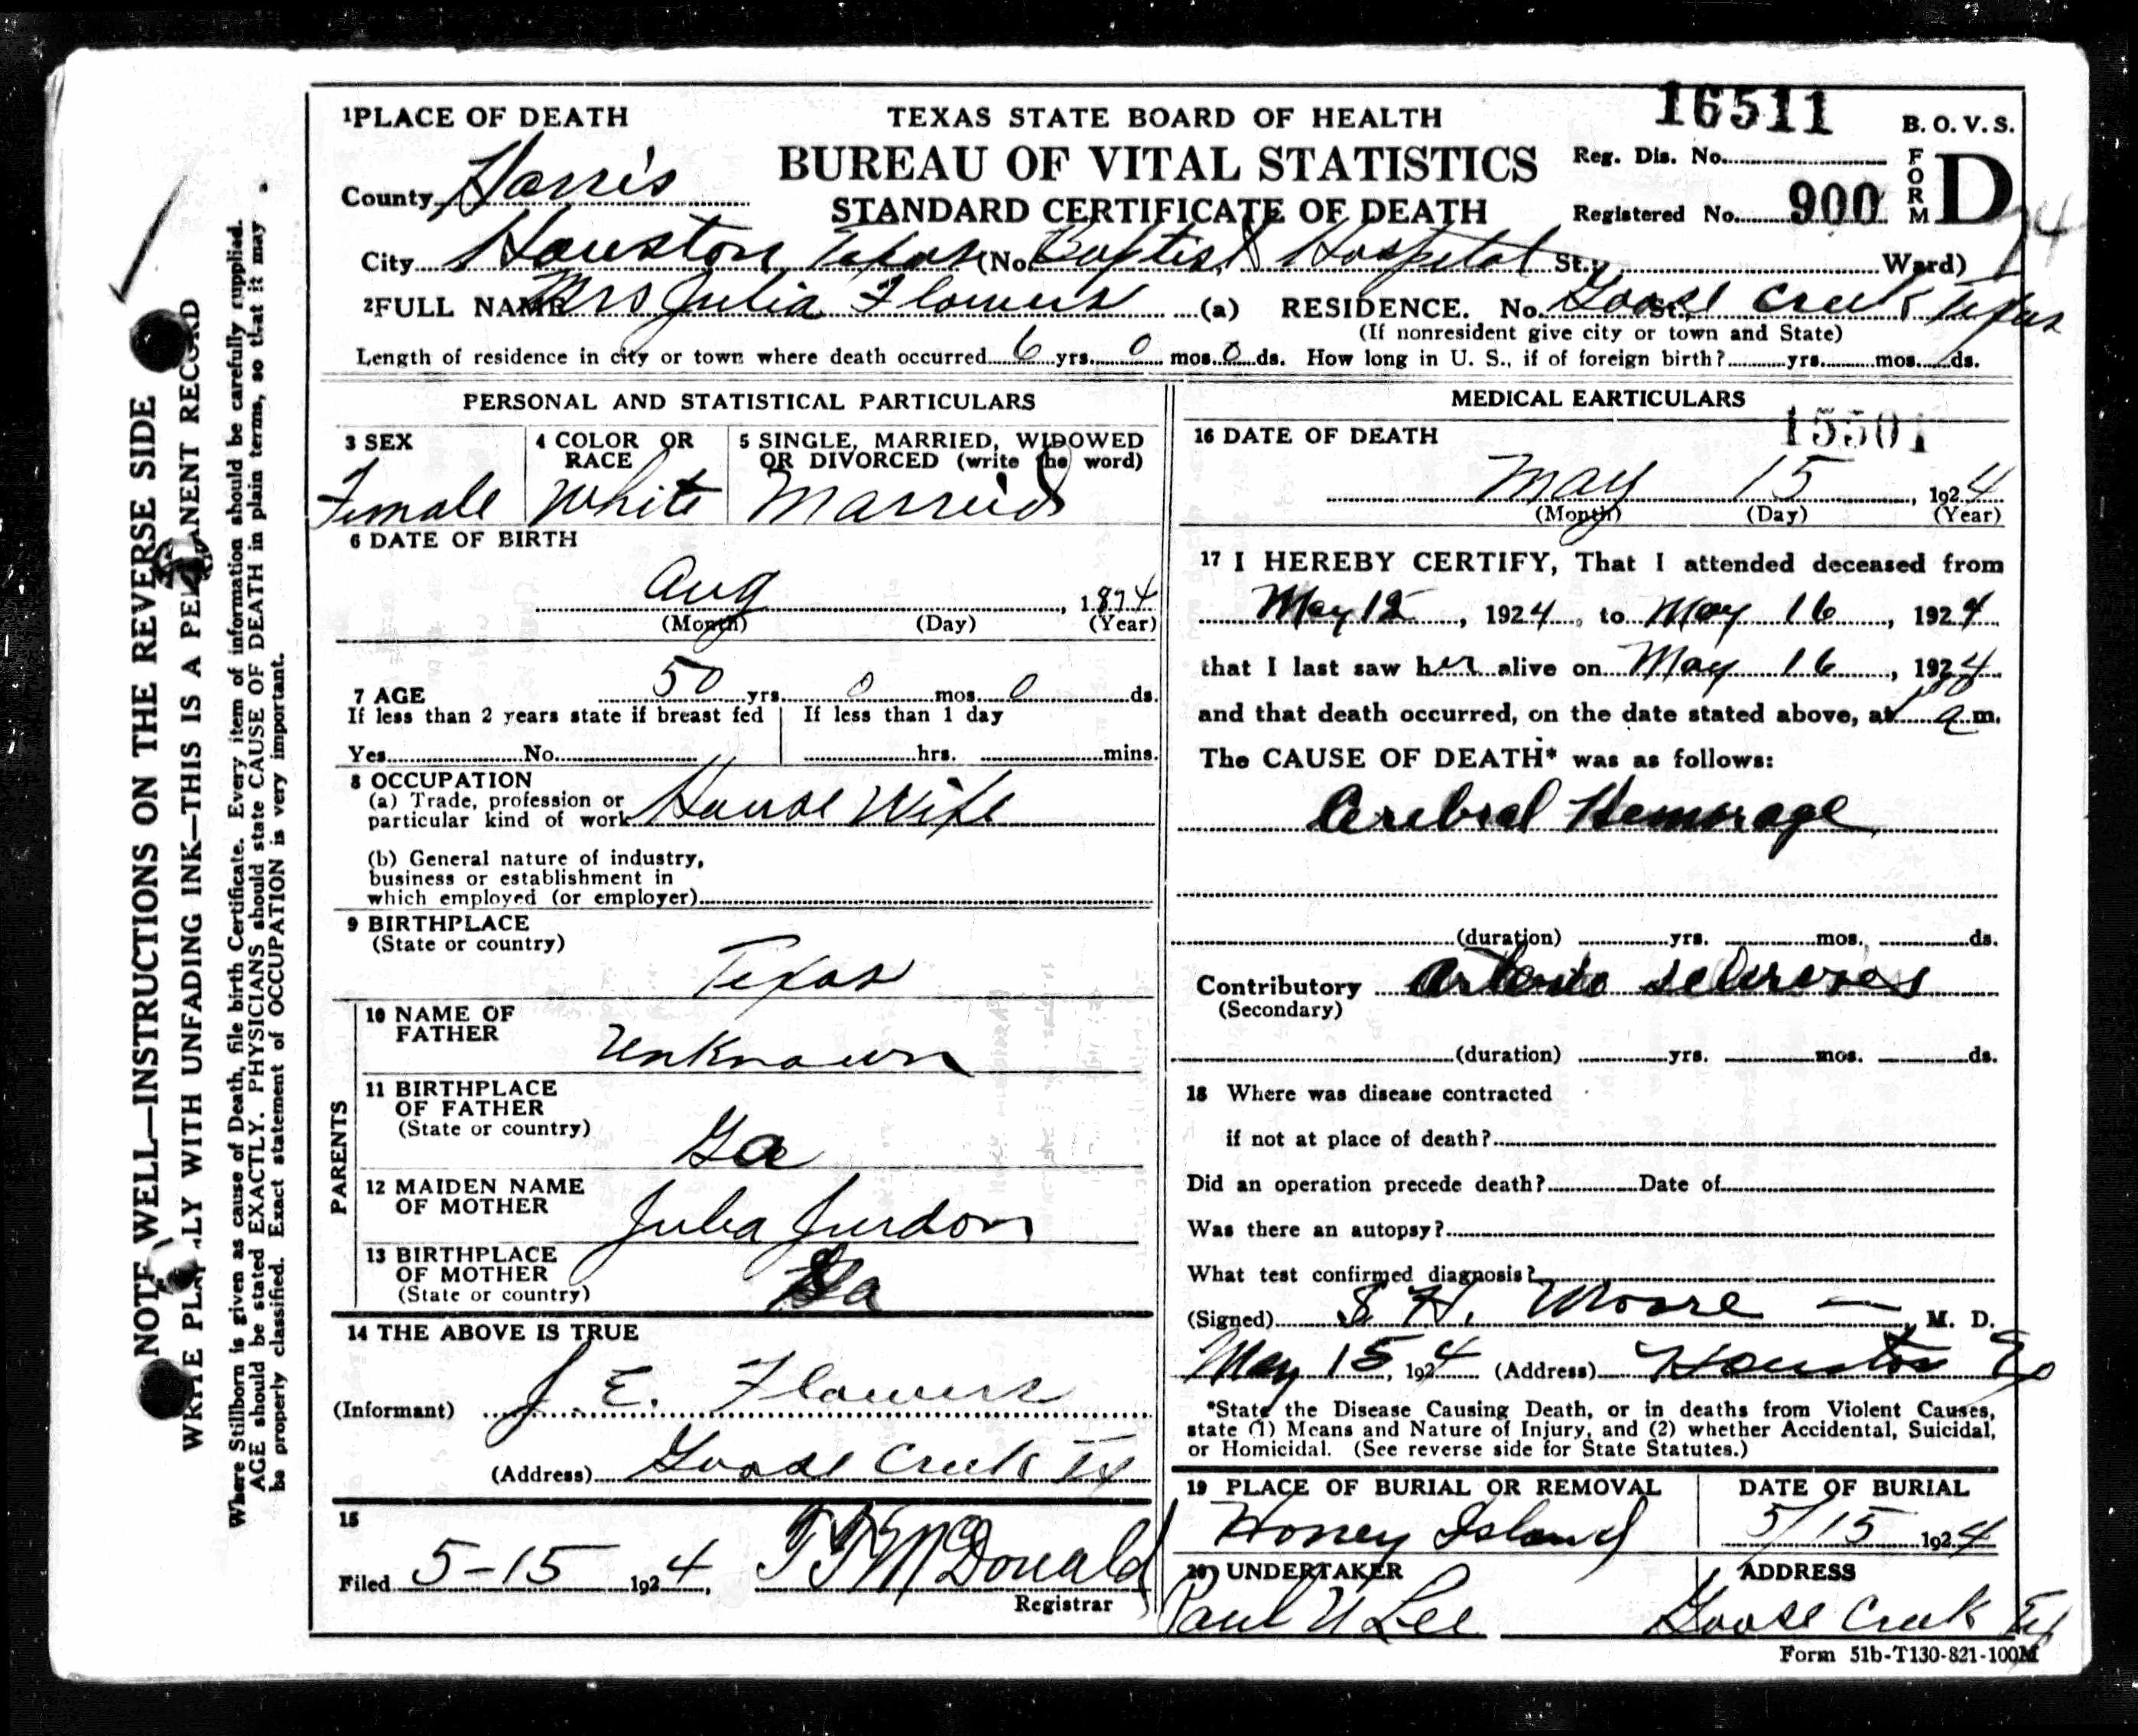 16511
1PLACE OF DEATH
TEXAS STATE BOARD OF HEALTH
B. O. V. S.
BUREAU OF VITAL STATISTICS
Reg. Dis. No.
FORM D
County Harris
STANDARD CERTIFICATE OF DEATH
Registered No. 900
City Houston Texas (No. Baptist Hospital St., Ward)
2FULL NAME Mrs Julia Flowers (a) RESIDENCE. No. Goose Creek St., Texas
(If nonresident give city or town and State)
Length of residence in city or town where death occurred 6 yrs. 0 mos. 0 ds. How long in U. S., if of foreign birth? yrs. mos. ds.
PERSONAL AND STATISTICAL PARTICULARS
3 SEX
Female
4 COLOR OR RACE
White
5 SINGLE, MARRIED, WIDOWED
OR DIVORCED (write the word)
Married
6 DATE OF BIRTH
Aug , 1874
(Month) (Day) (Year)
7 AGE 50 yrs. 0 mos. 0 ds.
If less than 2 years state if breast fed
Yes No
If less than 1 day
hrs. mins.
8 OCCUPATION
(a) Trade, profession or
particular kind of work House Wife
(b) General nature of industry,
business or establishment in
which employed (or employer)
9 BIRTHPLACE
(State or country)
Texas
PARENTS
10 NAME OF
FATHER
Unknown
11 BIRTHPLACE
OF FATHER
(State or country)
Ga
12 MAIDEN NAME
OF MOTHER
Julia Jurdon
13 BIRTHPLACE
OF MOTHER
(State or country)
Ga
14 THE ABOVE IS TRUE
(Informant) J. E. Flowers
(Address) Goose Creek Tx
15
Filed 5-15 1924, T F McDonald
Registrar
MEDICAL EARTICULARS
15501
16 DATE OF DEATH
May 15 , 1924
(Month) (Day) (Year)
17 I HEREBY CERTIFY, That I attended deceased from
May 12, 1924, to May 16, 1924
that I last saw her alive on May 16, 1924
and that death occurred, on the date stated above, at a m.
The CAUSE OF DEATH* was as follows:
Cerebral Hemorage
(duration) yrs. mos. ds.
Contributory
(Secondary)
(duration) yrs. mos. ds.
18 Where was disease contracted
if not at place of death?
Did an operation precede death? Date of
Was there an autopsy?
What test confirmed diagnosis?
(Signed) S H. Moore — , M. D.
May 15, 1924 (Address) Houston
*State the Disease Causing Death, or in deaths from Violent Causes,
state (1) Means and Nature of Injury, and (2) whether Accidental, Suicidal,
or Homicidal. (See reverse side for State Statutes.)
19 PLACE OF BURIAL OR REMOVAL
Honey Island
DATE OF BURIAL
5/15 1924
20 UNDERTAKER
Paul U Lee
ADDRESS
Goose Creek Tex
Form 51b-T130-821-100M
NOTE WELL—INSTRUCTIONS ON THE REVERSE SIDE
WRITE PLAINLY WITH UNFADING INK—THIS IS A PERMANENT RECORD
Where Stillborn is given as cause of Death, file birth Certificate. Every item of information should be carefully supplied.
AGE should be stated EXACTLY. PHYSICIANS should state CAUSE OF DEATH in plain terms, so that it may
be properly classified. Exact statement of OCCUPATION is very important.